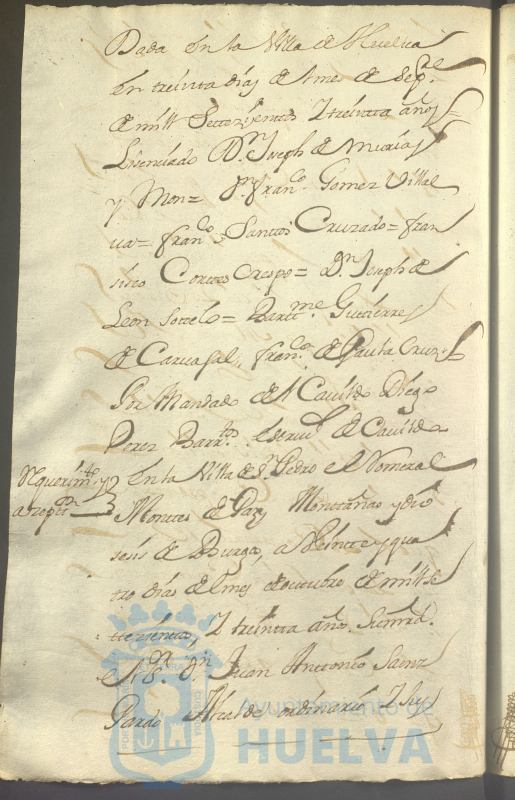 Dada en la Villa de Huelva
en treinta dias del mes de Sepre.
de mill Settecientos Y treinta años =
Lisenciado Dn. Joseph de Murias
y Mon = Dn. Franco. Gomez Villal
va = Franco. Santtos Cruzado = Fran
sisco Corttes Crespo = Dn. Joseph de
Leon Sottelo = Barttme. Gutierres
de Carvajal, Franco. de Pauta Cruz =
Por Mandado del Cavildo Diego
Perez Barro. escriuo. de Cavildo
Requerimto. y
aceptn.
En la Villa de Sn. Pedro el Romeral
Montes de Pas, Montañas y dio
sesis de Burgos, a Veinte y qua
tro dias del mes de octubre de mill se
ttecientos, Y treinta años. Su mrd.
el Sr. Dn. Juan Anttonio Sainz
Pardo Alcalde ordinario Y Jues
Ayuntamiento de
HUELVA